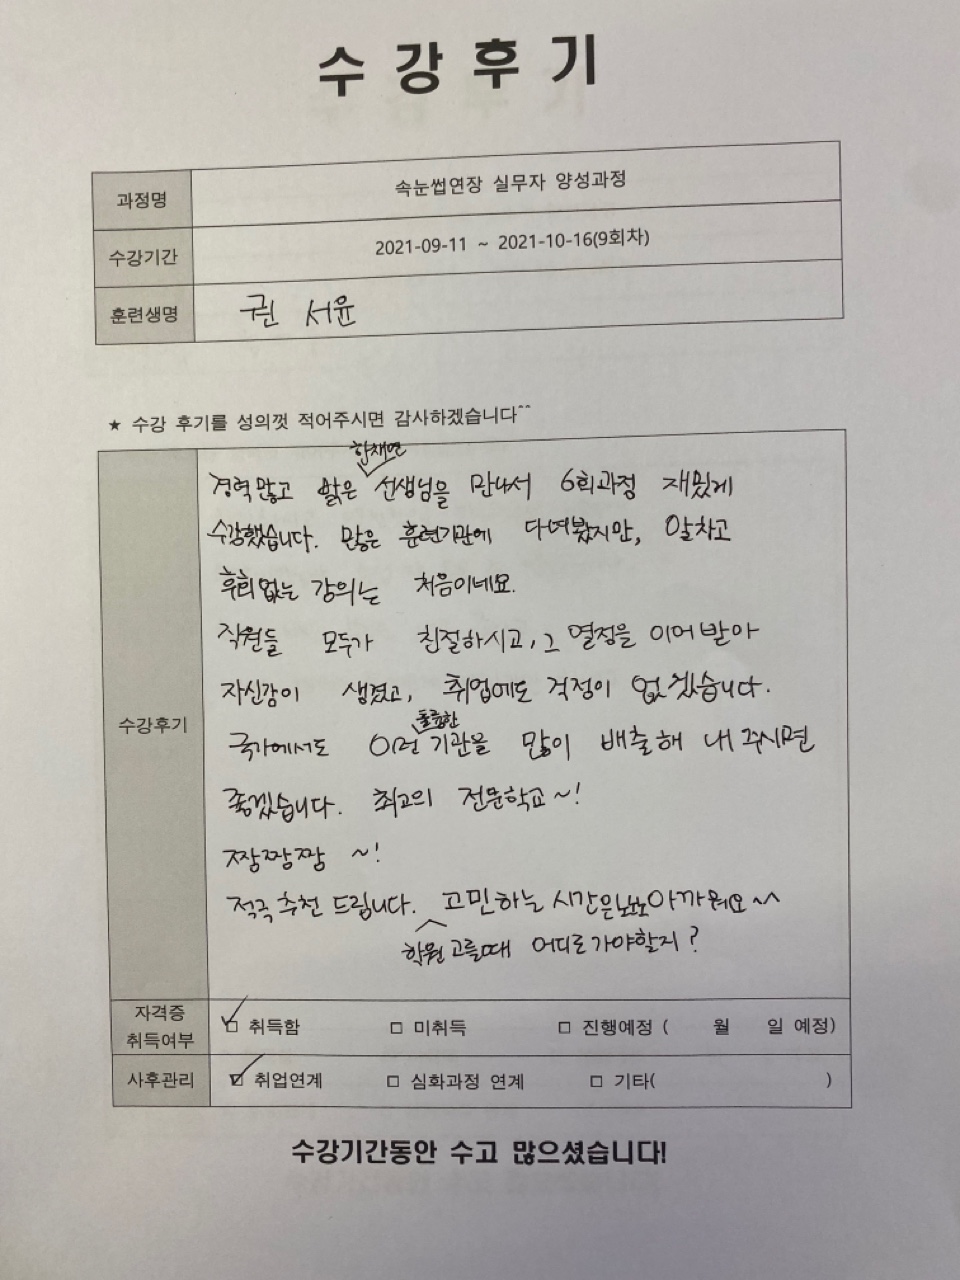 수강후기
과정명 속눈썹연장 실무자 양성과정
수강기간 2021-09-11 ~ 2021-10-16(9회차)
훈련생명 권 서윤
★ 수강 후기를 성의껏 적어주시면 감사하겠습니다^^
수강후기
한채연
경력많고 밝은 선생님을 만나서 6회과정 재밌게
수강했습니다. 많은 훈련기관에 다녀봤지만, 알차고
후회없는 강의는 처음이네요.
직원들 모두가 친절하시고, 그 열정을 이어받아
자신감이 생겼고, 취업에도 걱정이 없겠습니다.
훌륭한
국가에서도 이런 기관을 많이 배출해 내 주시면
좋겠습니다. 최고의 전문학교~!
짱짱짱 ~!
적극 추천 드립니다. 고민하는 시간은 아까워요~^^
학원 고를때 어디로가야할지?
자격증 취득여부 ☑ 취득함 □ 미취득 □ 진행예정 ( 월 일 예정)
사후관리 ☑ 취업연계 □ 심화과정 연계 □ 기타( )
수강기간동안 수고 많으셨습니다!